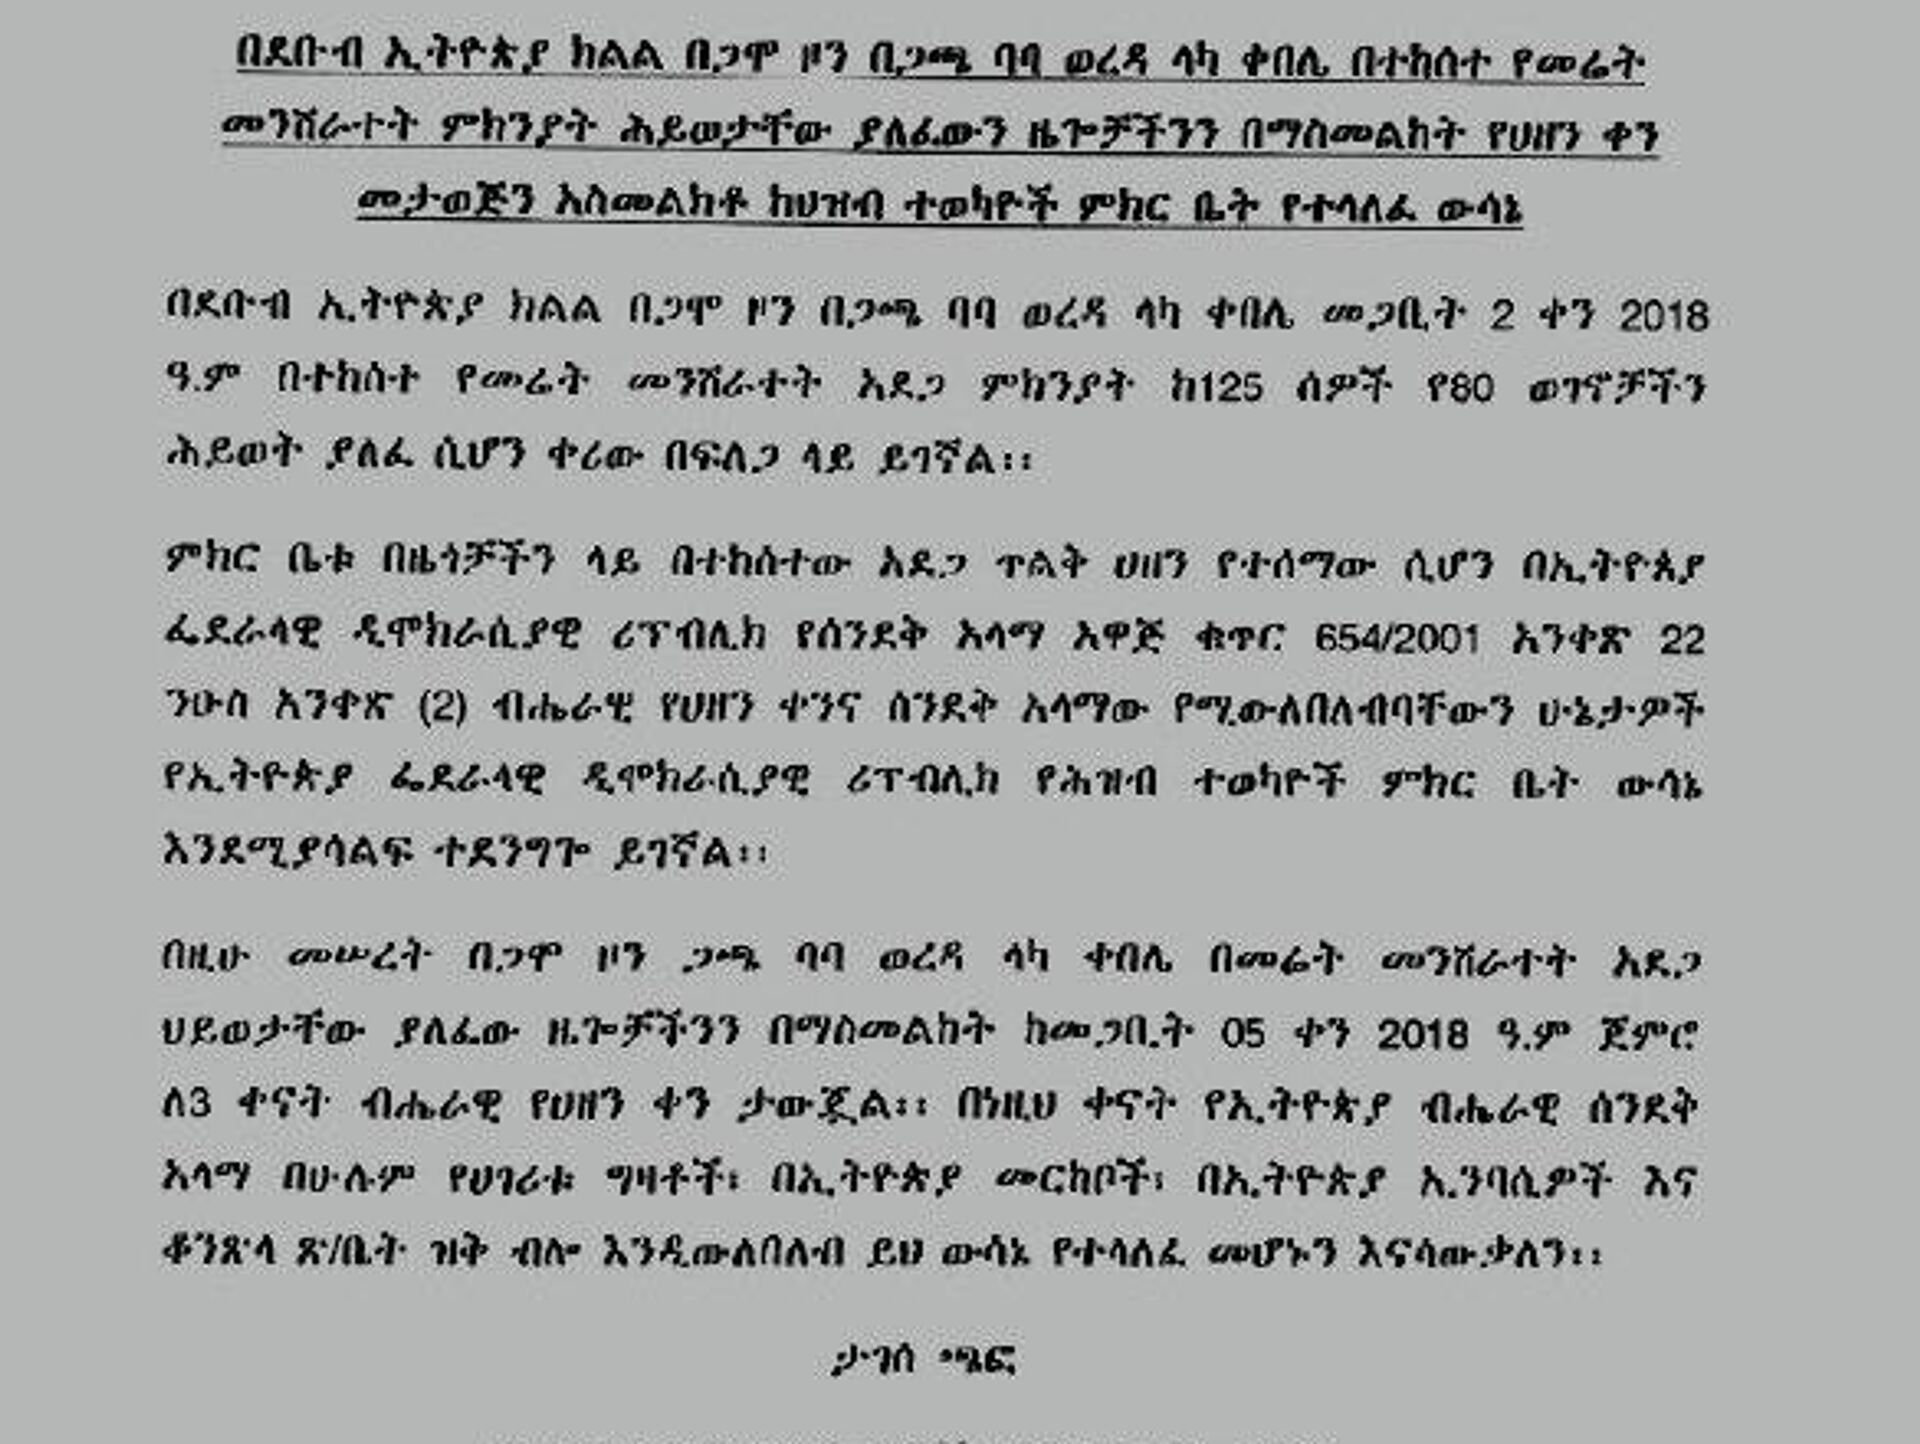 በደቡብ ኢትዮጵያ ክልል በጋሞ ዞን በጋጫ ባባ ወረዳ ላካ ቀበሌ በተከሰተ የመሬት
መንሸራተት ምክንያት ሕይወታቸው ያለፈውን ዜጐቻችንን በማስመልከት የሀዘን ቀን
መታወጅን አስመልክቶ ከህዝብ ተወካዮች ምክር ቤት የተላለፈ ውሳኔ
በደቡብ ኢትዮጵያ ክልል በጋሞ ዞን በጋጫ ባባ ወረዳ ላካ ቀበሌ መጋቢት 2 ቀን 2018
ዓ.ም በተከሰተ የመሬት መንሸራተት አደጋ ምክንያት ከ125 ሰዎች የ80 ወገኖቻችን
ሕይወት ያለፈ ሲሆን ቀሪው በፍለጋ ላይ ይገኛል፡፡
ምክር ቤቱ በዜጎቻችን ላይ በተከሰተው አደጋ ጥልቅ ሀዘን የተሰማው ሲሆን በኢትዮጲያ
ፌደራላዊ ዲሞክራሲያዊ ሪፐብሊክ የሰንደቅ አላማ አዋጅ ቁጥር 654/2001 አንቀጽ 22
ንዑስ አንቀጽ (2) ብሔራዊ የሀዘን ቀንና ሰንደቅ አላማው የሚውለበለብባቸውን ሁኔታዎች
የኢትዮጵያ ፌደራላዊ ዲሞክራሲያዊ ሪፐብሊክ የሕዝብ ተወካዮች ምክር ቤት ውሳኔ
እንደሚያሳልፍ ተደንግጐ ይገኛል፡፡
በዚሁ መሠረት በጋሞ ዞን ጋጫ ባባ ወረዳ ላካ ቀበሌ በመሬት መንሸራተት አደጋ
ህይወታቸው ያለፈው ዜጐቻችንን በማስመልከት ከመጋቢት 05 ቀን 2018 ዓ.ም ጀምሮ
ለ3 ቀናት ብሔራዊ የሀዘን ቀን ታውጇል፡፡ በነዚህ ቀናት የኢትዮጵያ ብሔራዊ ሰንደቅ
አላማ በሁሉም የሀገሪቱ ግዛቶች፣ በኢትዮጵያ መርከቦች፣ በኢትዮጵያ ኢንባሲዎች እና
ቆንጽላ ጽ/ቤት ዝቅ ብሎ እንዲውለበለብ ይህ ውሳኔ የተላለፈ መሆኑን እናሳውቃለን፡፡
ታገሰ ጫፎ